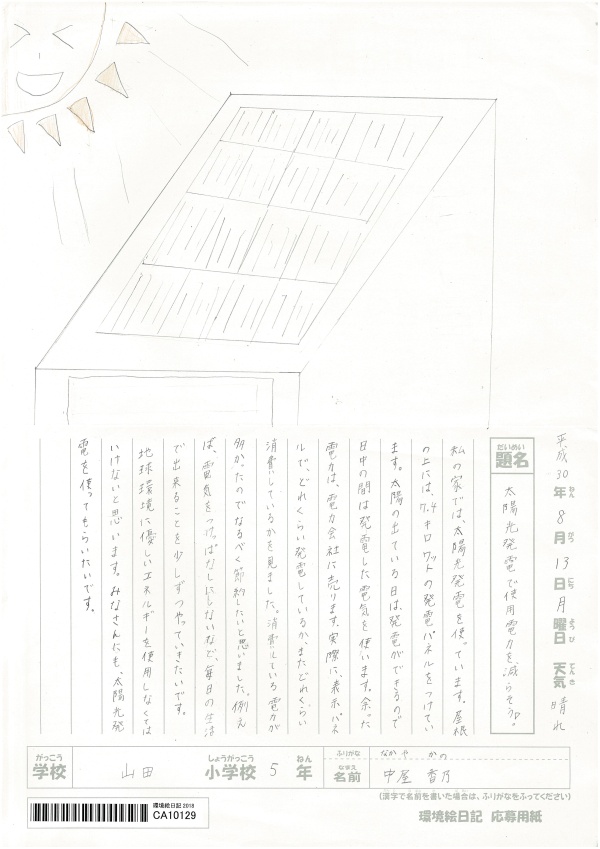 平成30年ねん8月がつ13日にち月曜日ようび 天気てんき 晴れ
題名だいめい 太陽光発電で使用電力を減らそう。
私の家では、太陽光発電を使っています。屋根
の上には、7.4キロワットの発電パネルをつけてい
ます。太陽の出ている日は、発電ができるので
日中の間は発電した電気を使います。余った
電力は、電力会社に売ります。実際に、表示パネ
ルで、どれくらい発電しているか、またどれくらい
消費しているかを見ました。消費している電力が
多かったのでなるべく節約したいと思いました。例え
ば、電気をつけっぱなしにしないなど、毎日の生活
で出来ることを少しずつやっていきたいです。
地球環境に優しいエネルギーを使用しなくては
いけないと思います。みなさんにも、太陽光発
電を使ってもらいたいです。
学校がっこう 山田 小学校しょうがっこう 5 年ねん
ふりがな なかや かの
名前なまえ 中屋 香乃
(漢字で名前を書いた場合は、ふりがなをふってください)
環境絵日記 2018
CA10129
環境絵日記 応募用紙